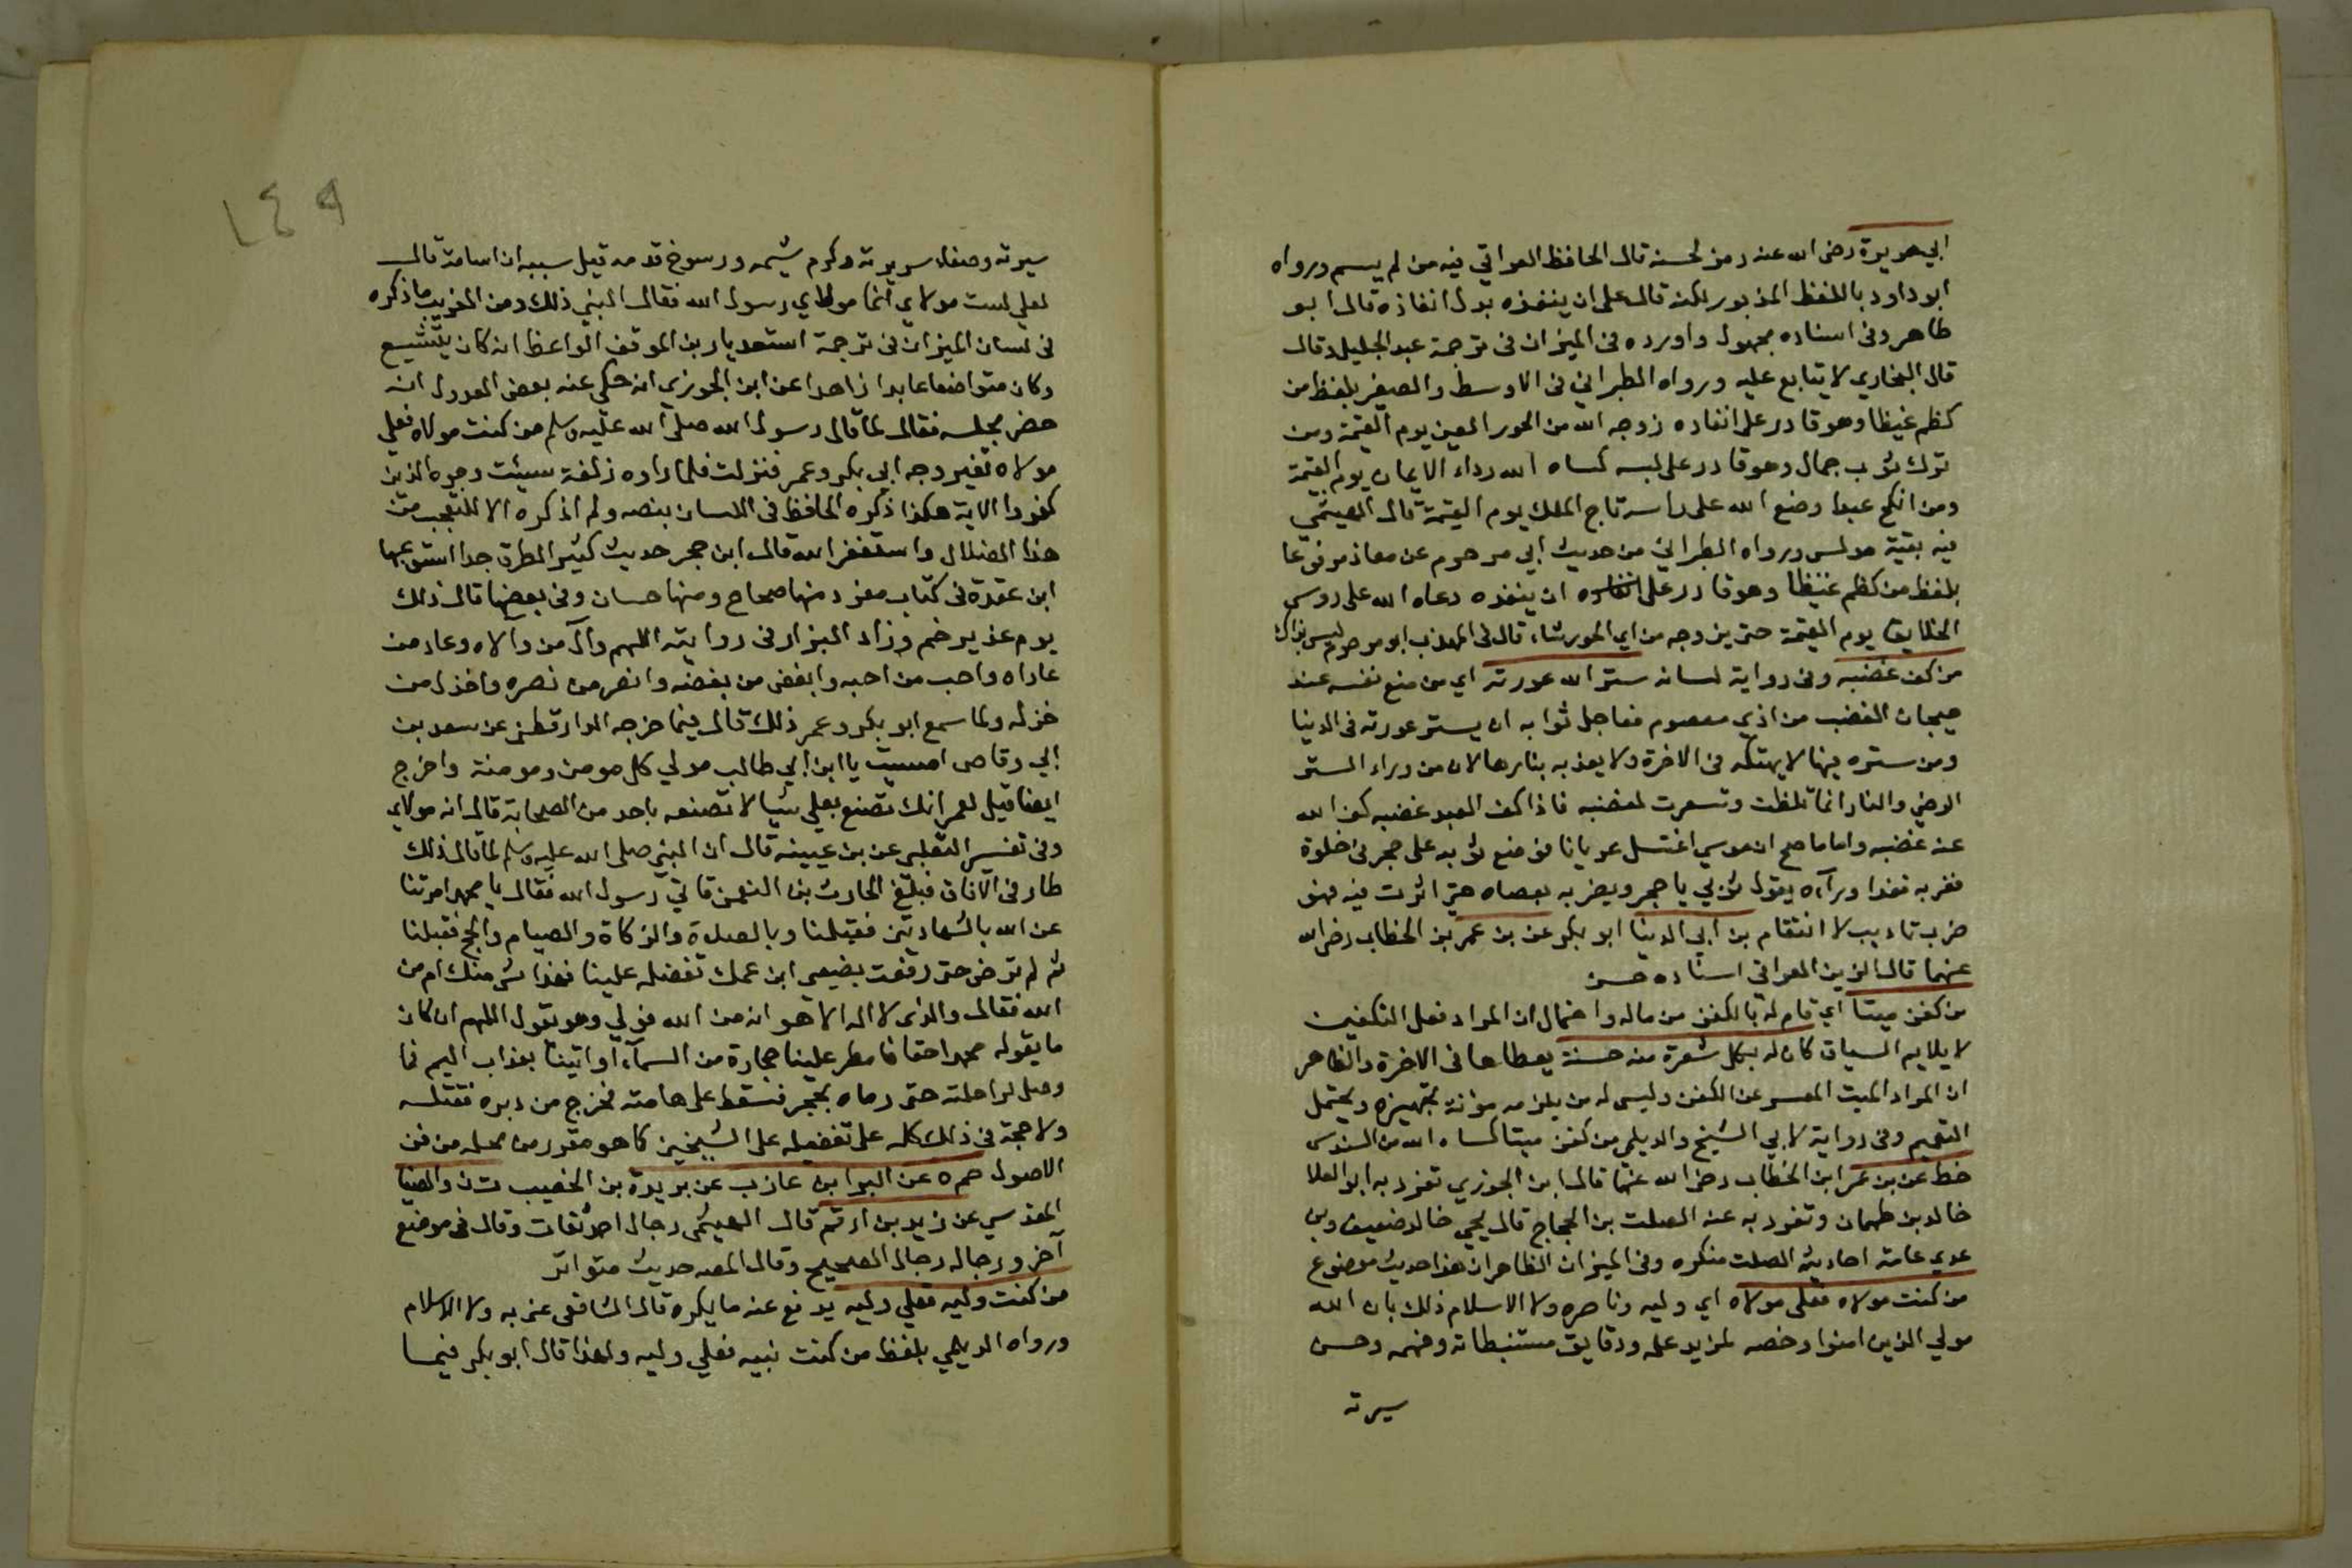 ابي هريرة رضى الله عنه رمز لحسنه قال الحافظ العراقي فيه من لم يسم ورواه
ابو داود باللفظ المذبور لكنه قال على ان ينفذه بدل انفاذه قال ابو
طاهر وفى اسناده مجهول واورده فى الميزان فى ترجمة عبد الجليل وقال
قال البخاري لا يتابع عليه ورواه الطبراني فى الاوسط والصغير بلفظ من
كظم غيظا وهو قادر على انفاده زوجه الله من الحور العين يوم القيمة ومن
ترك ثوب جمال وهو قادر على لبسه كساه الله رداء الايمان يوم القيمة
ومن انكح عبدا وضع الله على راسه تاج الملك يوم القيمة قال الهيثمي
فيه بقية مدلس ورواه الطبراني من حديث ابي مرحوم عن معاذ مرفوعا
بلفظ من كظم غيظا وهو قادر على ان ينفذه دعاه الله على روس
الخلايق يوم القيمة حتى يزوجه من اي الحور شاء قال فى المهذب ابو مرحوم ليس بذاك
من كف غضبه وفى رواية لسانه ستر الله عورته اي من منع نفسه عند
هيجان الغضب من اذي معصوم فعاجل ثوابه ان يستر عورته فى الدنيا
ومن ستره فيها لا يهتكه فى الاخرة ولا يعذبه بنارها لان من وراء الستر
الرضي والنار انما تلظت وتسعرت لغضبه فاذا كف العبد غضبه كف الله
عنه غضبه واما ما صح ان موسي اغتسل عريانا فوضع ثوبه على حجر فى خلوة
ففر به فعدا وراءه يقول ثوبي يا حجر ويضربه بعصاه حتى اثرت فيه فهو
ضرب تاديب لا انتقام بن ابي الدنيا ابو بكر عن بن عمر بن الخطاب رضى الله
عنهما قال الزين العراقي اسناده حسن
من كفن ميتا اي قام له بالكفن من ماله واحتمال ان المراد فعل التكفين
لا يلايم السياق كان له بكل شعرة منه حسنة يعطاها فى الاخرة والظاهر
ان المراد الميت المعسر عن الكفن وليس له من يلزمه مؤنة تجهيزه ويحتمل
التعميم وفى رواية لابي الشيخ والديلمي من كفن ميتا كساه الله من السندس
خط عن بن عمر ابن الخطاب رضى الله عنهما قال ابن الجوزي تفرد به ابو العلا
خالد بن طهمان وتفرد به عنه الصلت بن الحجاج قال يحيى خالد ضعيف وبن
عدي عامة احاديث الصلت منكره وفى الميزان الظاهر ان هذا حديث موضوع
من كنت مولاه فعلى مولاه اي وليه وناصره ولاء الاسلام ذلك بان الله
مولي الذين امنوا وخصه لمزيد علمه ودقايق مستنبطاته وفهمه وحسن
سيرته
١٤٩
سيرته وصفاء سريرته وكرم شيمه ورسوخ قدمه قيل سببه ان اسامة قال
لعلى لست مولاي انما مولاي رسول الله فقال النبي ذلك ومن الغريب ما ذكره
فى لسان الميزان فى ترجمة اسفنديار بن الموفق الواعظ انه كان يتشيع
وكان متواضعا عابدا زاهدا عن ابن الجوزي انه حكى عنه بعض العدول انه
حضر مجلسه فقال لما قال رسول الله صلى الله عليه وسلم من كنت مولاه فعلي
مولاه تغير وجه ابي بكر وعمر فنزلت فلما راوه زلفة سيئت وجوه الذين
كفروا الاية هكذا ذكره الحافظ فى اللسان بنصه ولم اذكره الا للتعجب من
هذا الضلال واستغفر الله قال ابن حجر حديث كثير الطرق جدا استوعبها
ابن عقدة فى كتاب مفرد منها صحاح ومنها حسان وفى بعضها قال ذلك
يوم غدير خم وزاد البزار فى روايته اللهم وال من والاه وعاد من
عاداه واحب من احبه وابغض من بغضه وانصر من نصره واخذل من
خذله ولما سمع ابو بكر وعمر ذلك قالا فيما خرجه الدارقطنى عن سعد بن
ابي وقاص امسيت يا ابن ابي طالب مولي كل مومن ومومنة واخرج
ايضا قيل لعمر انك تصنع بعلي شيا لا تصنعه باحد من الصحابة قال انه مولاي
وفى تفسير الثعلبي عن بن عيينه قال ان النبي صلى الله عليه وسلم لما قال ذلك
طار فى الافاق فبلغ الحارث بن النعمن فاتي رسول الله فقال يا محمد امرتنا
عن الله بالشهادتين فقبلنا وبالصلاة والزكاة والصيام والحج فقبلنا
ثم لم ترض حتى رفعت بضبعي ابن عمك تفضله علينا فهذا شى منك ام من
الله فقال والذى لا اله الا هو انه من الله فولي وهو يقول اللهم ان كان
ما يقوله محمد احقا فامطر علينا حجارة من السماء او اتينا بعذاب اليم فما
وصل لراحلته حتى رماه بحجر فسقط على هامته فخرج من دبره فقتله
ولا حجة فى ذلك كله على تفضيله على الشيخين كما هو مقرر من محله من فن
الاصول حم ه عن البرا بن عازب عن بريدة بن الحصيب ت ن والضيا
المقدسي عن زيد بن ارقم قال الهيثمي رجال احمد ثقات وقال فى موضع
آخر ورجاله رجال الصحيح وقال المصه حديث متواتر
من كنت وليه فعلي وليه يدفع عنه ما يكره قال الشافعى عنى به ولاء الاسلام
ورواه الديلمي بلفظ من كنت نبيه فعلي وليه ولهذا قال ابو بكر فيما